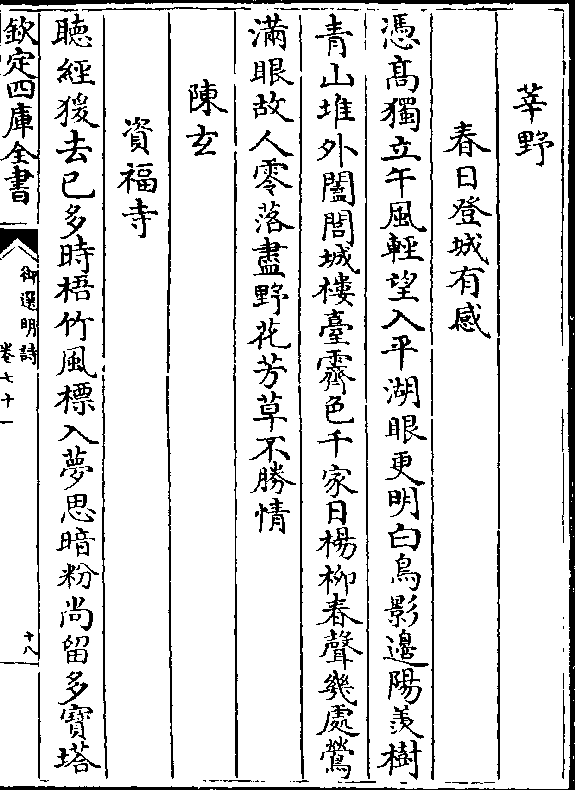 莘野
春日登城有感
憑髙獨立午風輕望入平湖眼更明白鳥影邊陽羨樹
青山堆外闔閭城樓臺霽色千家日楊柳春聲幾處鶯
滿眼故人零落盡野花芳草不勝情
陳玄
資福寺
聴經猨去已多時梧竹風標入夢思暗粉尚留多寶塔
欽定四庫全書
御選明詩
卷七十一
十八